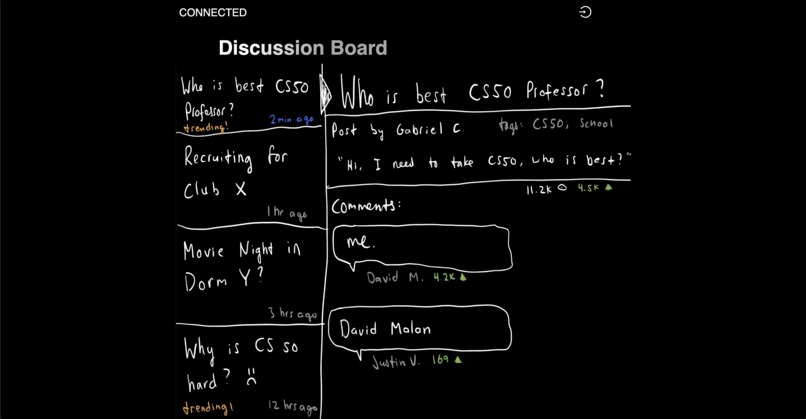 CONNECTED
Discussion Board
Who is best CS50
Professor?
trending!
2min ago
Recruiting for
Club X
1 hr ago
Movie Night in
Dorm Y?
3 hrs ago
Why is CS so
hard?
trending!
12 hrs ago
Who is best CS50 Professor?
Post by Gabriel C.
tags: CS50, School
"Hi, I need to take CS50, who is best?"
11.2K
4.5K
Comments:
me.
David M. 4.2K
David Malan
Justin V. 169